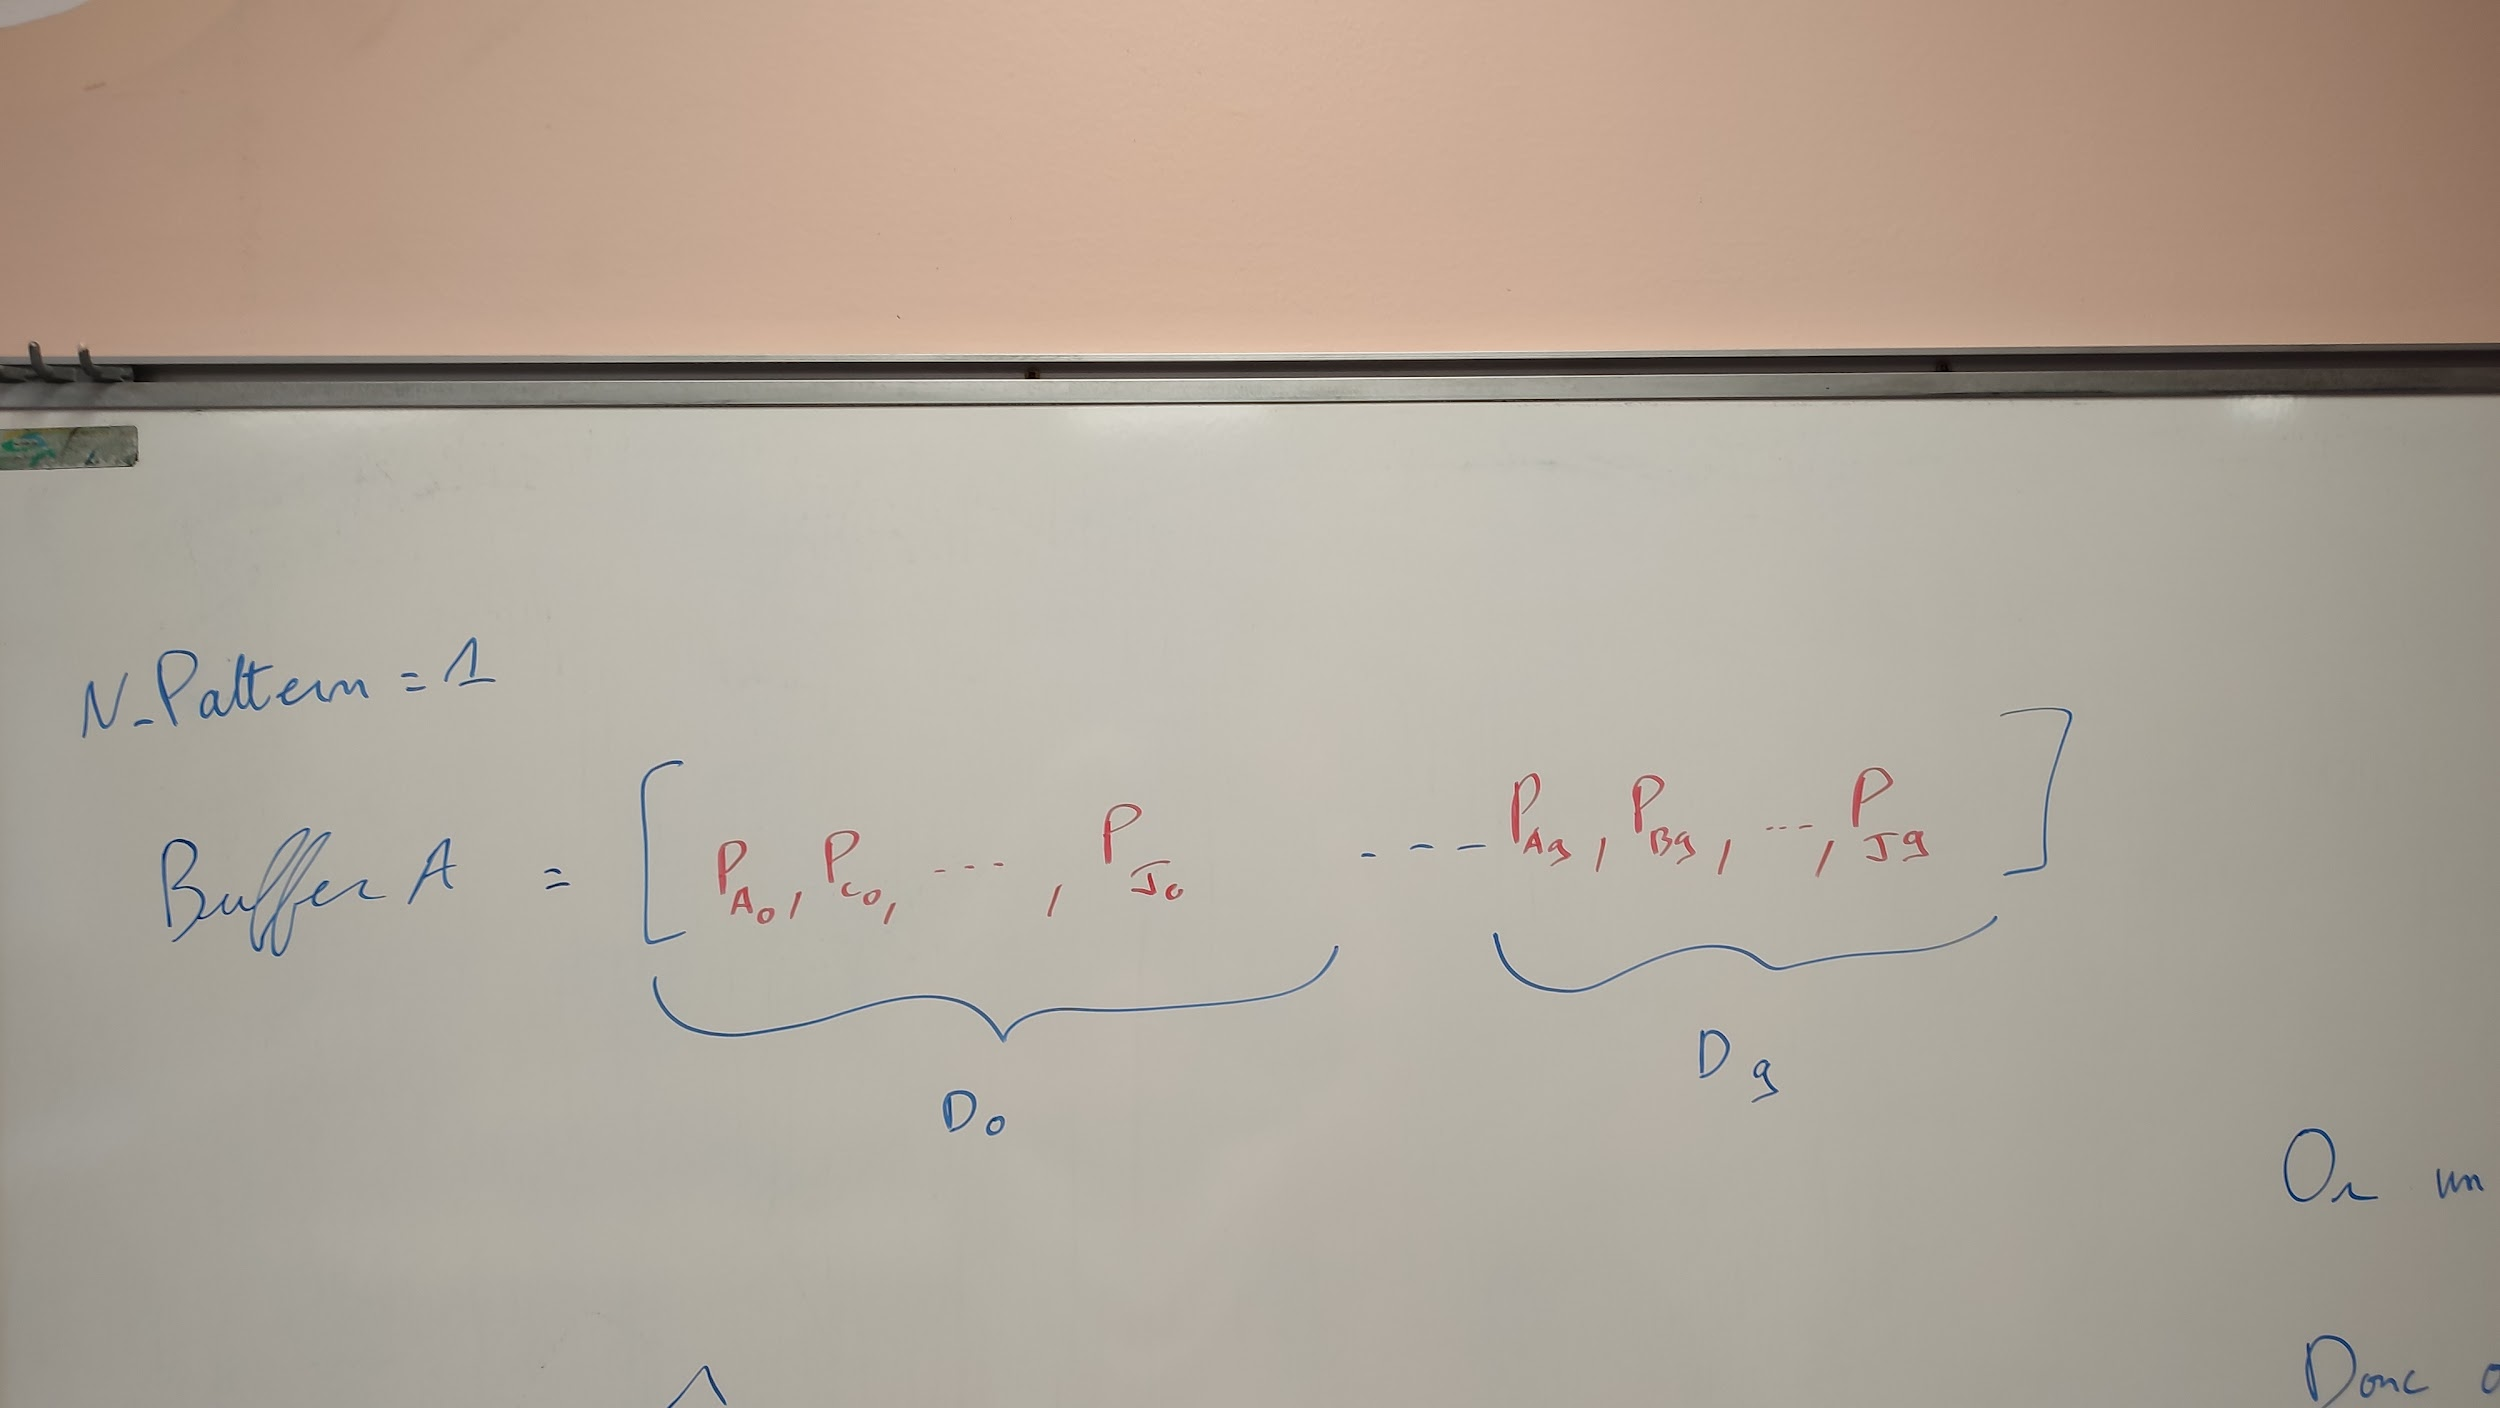 N_Pattern = 1
Buffer A = [ P_A0, P_C0, ---, P_J0 --- P_A9, P_B9, ---, P_J9 ]
D_0 D_9
Or un
Donc